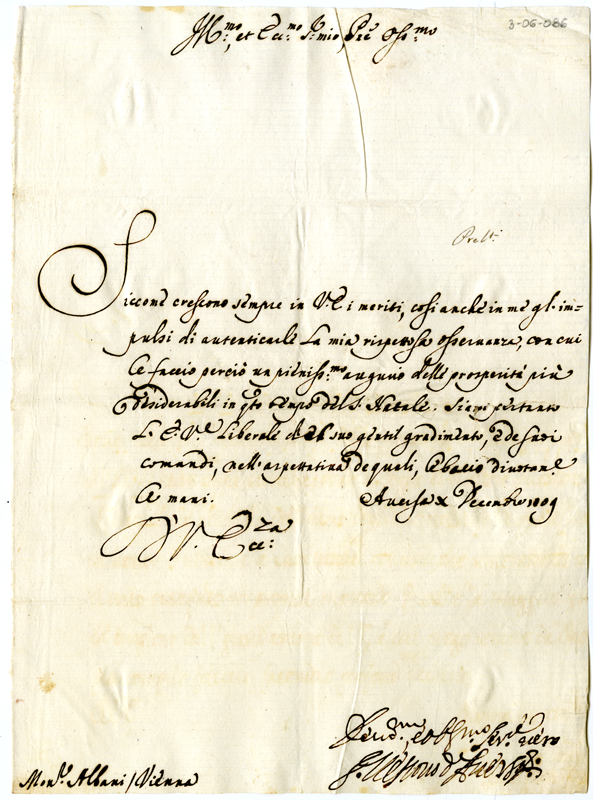 3-06-086
Ill:mo, et Ecc:mo S:r mio, Pre Oss:mo
Siccome crescono sempre in V.E. i meriti, così anche in me gl'im=
pulsi di autenticarle la mia rispettosa osservanza, con cui
le faccio perciò un pieniss:mo augurio delle prosperità più
desiderabili in q:to tempo del S. Natale. Siami pertanto
L. E. V.a liberale del suo gentil gradimento, e de suoi
comandi, nell'aspettativa de quali, le bacio divotam.e
le mani. Aversa X Decembre
D' V. Ecc:za
Mon.r Albani / Vienna